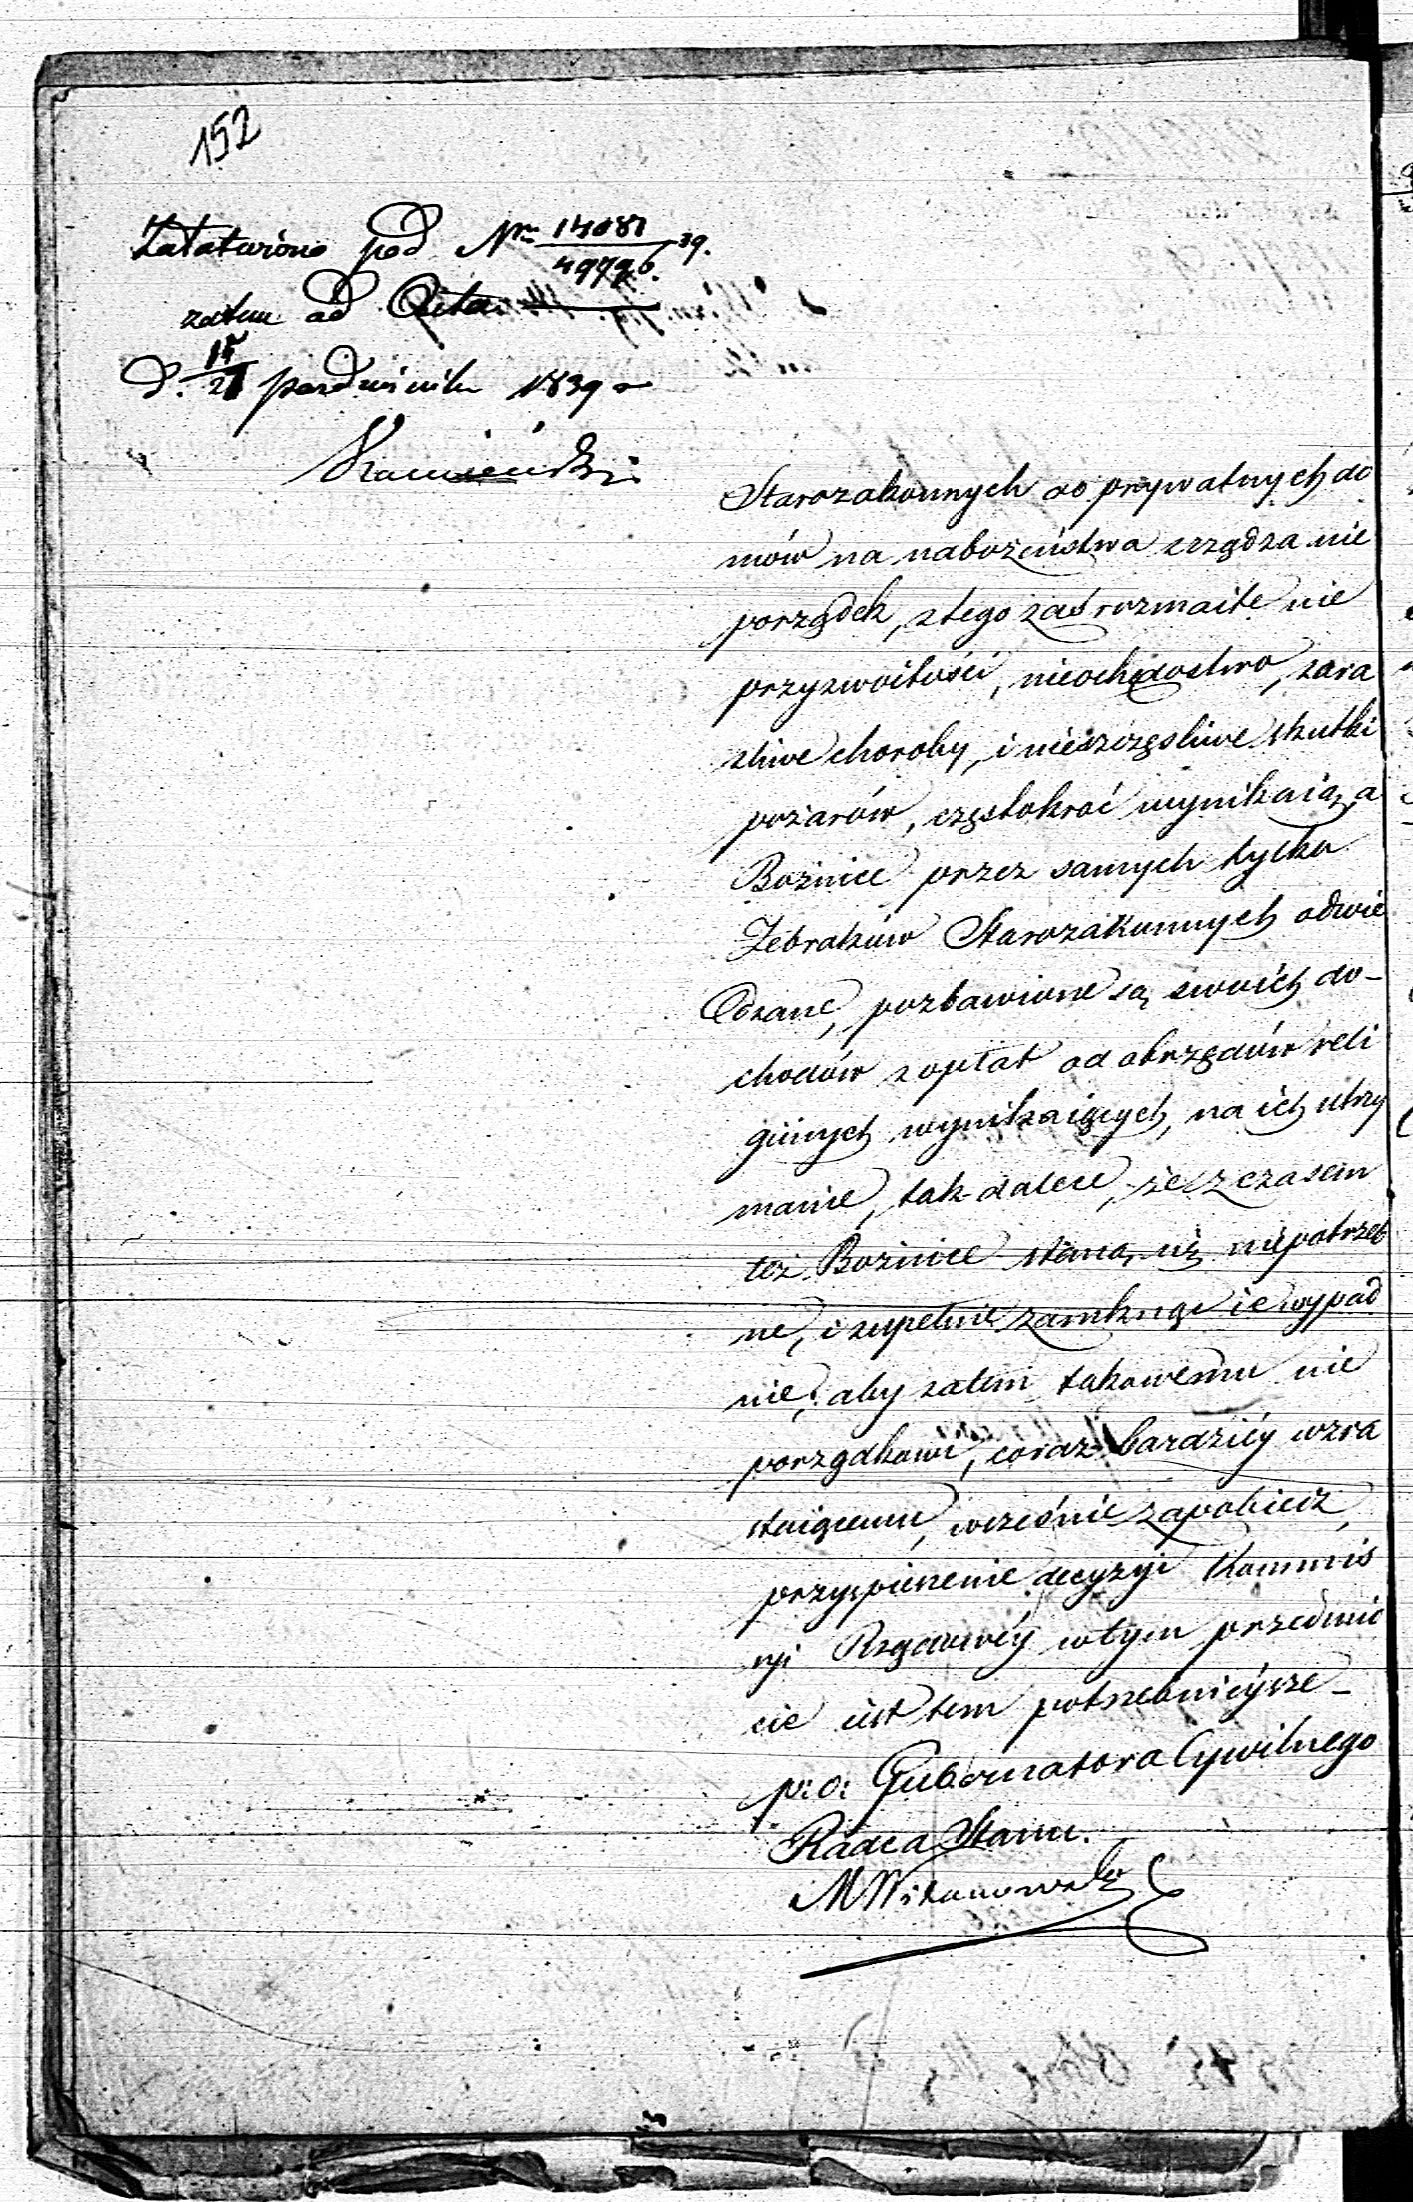 152
Załatwiono pod Nrm 14081/49796. 39.
zatem ad Acta
d. 15/27 października 1839 r
Starozakonnych do prywatnych do
mów na nabożeństwa zrządza nie
porządek, z tego zaś rozmaite nie
przyzwoitości, nieochędostwo, zara
źliwe choroby, i nieszczęśliwe skutki
pożarów, częstokroć wynikaią, a
Bożnice przez samych tylko
Żebraków Starozakonnych odwie
dzane, pozbawione są swoich do-
chodów z opłat od obrzędów reli
giinych wynikaiących, na ich utrzy
manie, tak dalece, że z czasem
też Bożnice staną się niepotrzeb
ne, i zupełnie zamknąć ie wypad
nie, aby zatem takowemu nie
porządkowi, coraz bardziéy wzra
staiącemu, wcześnie zapobiedz,
przyspieszenie decyzyi Kommis
syi Rządowéy w tym przedmio
cie iest tem potrzebnieysze_
p: o: Gubernatora Cywilnego
Radca Stanu.